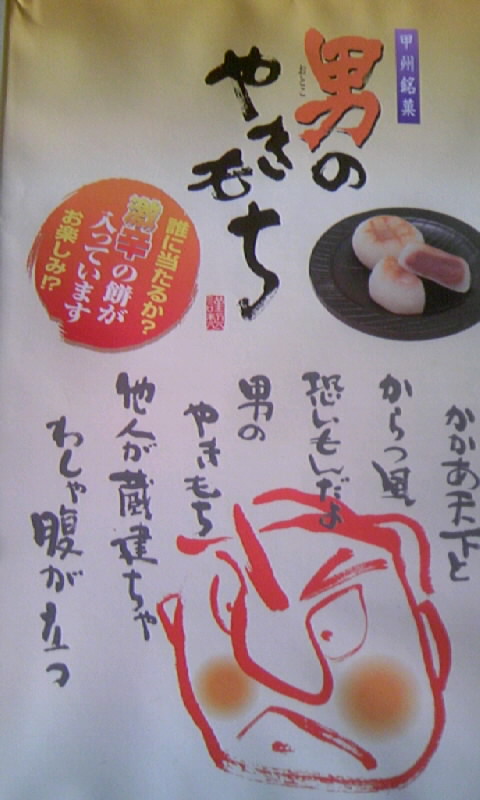 甲州銘菓
男の
おとこ
やきもち
誰に当たるか?
激辛の餅が
入っています
お楽しみ!?
かかあ天下と
からっ風
恐いもんだよ
男の
やきもち
他人が蔵建ちゃ
わしゃ腹が立つ